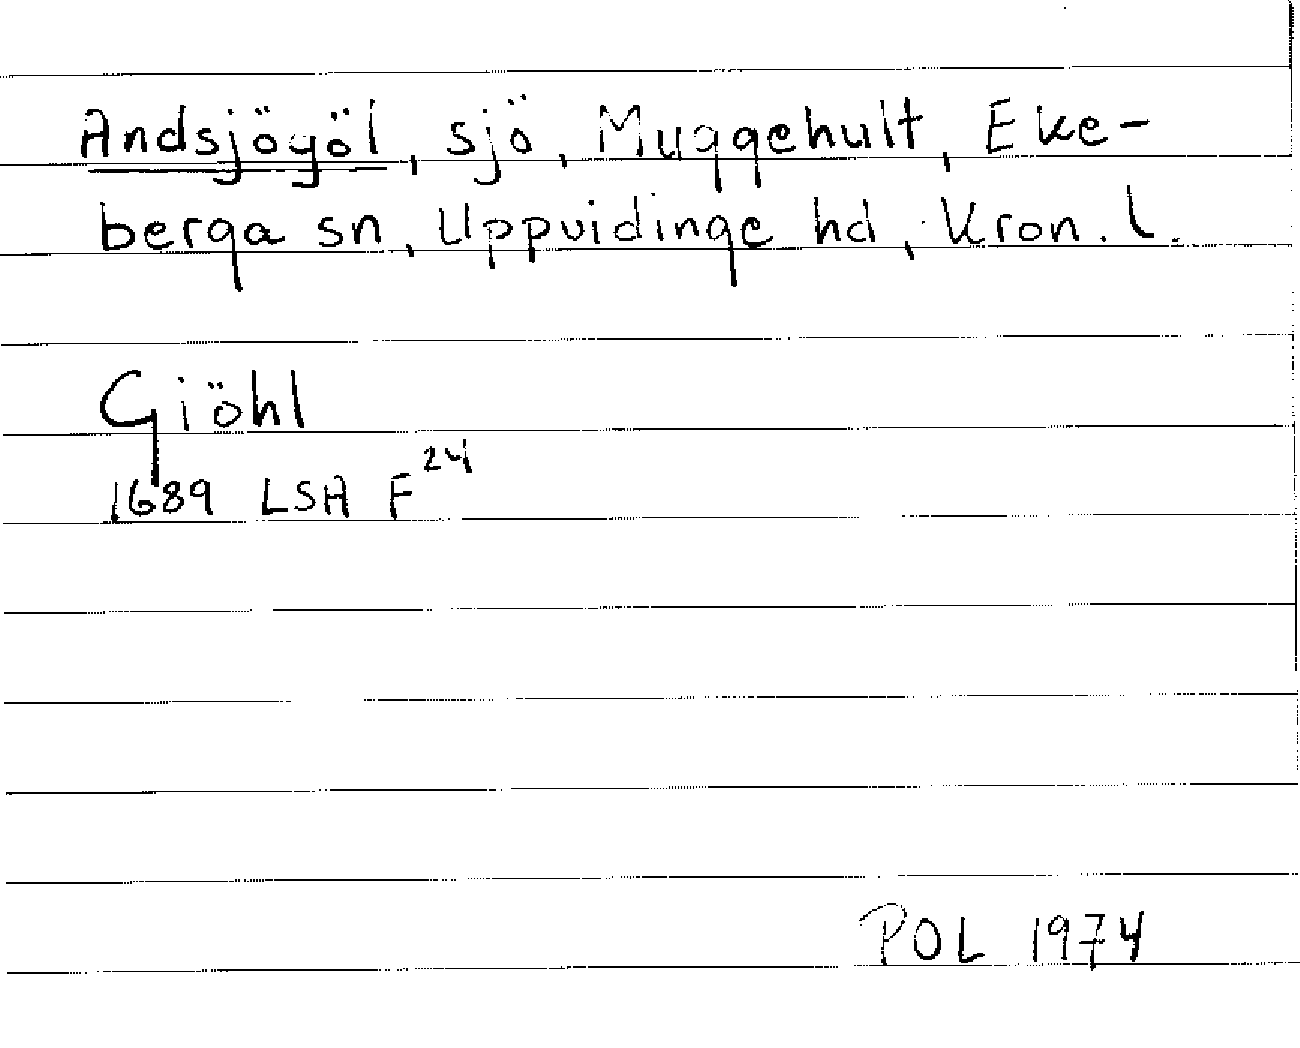 Andsjögöl, sjö, Muggehult, Eke-
berga sn, Uppvidinge hd, Kron. l.
Giöhl
1689 LSA F24
POL 1974